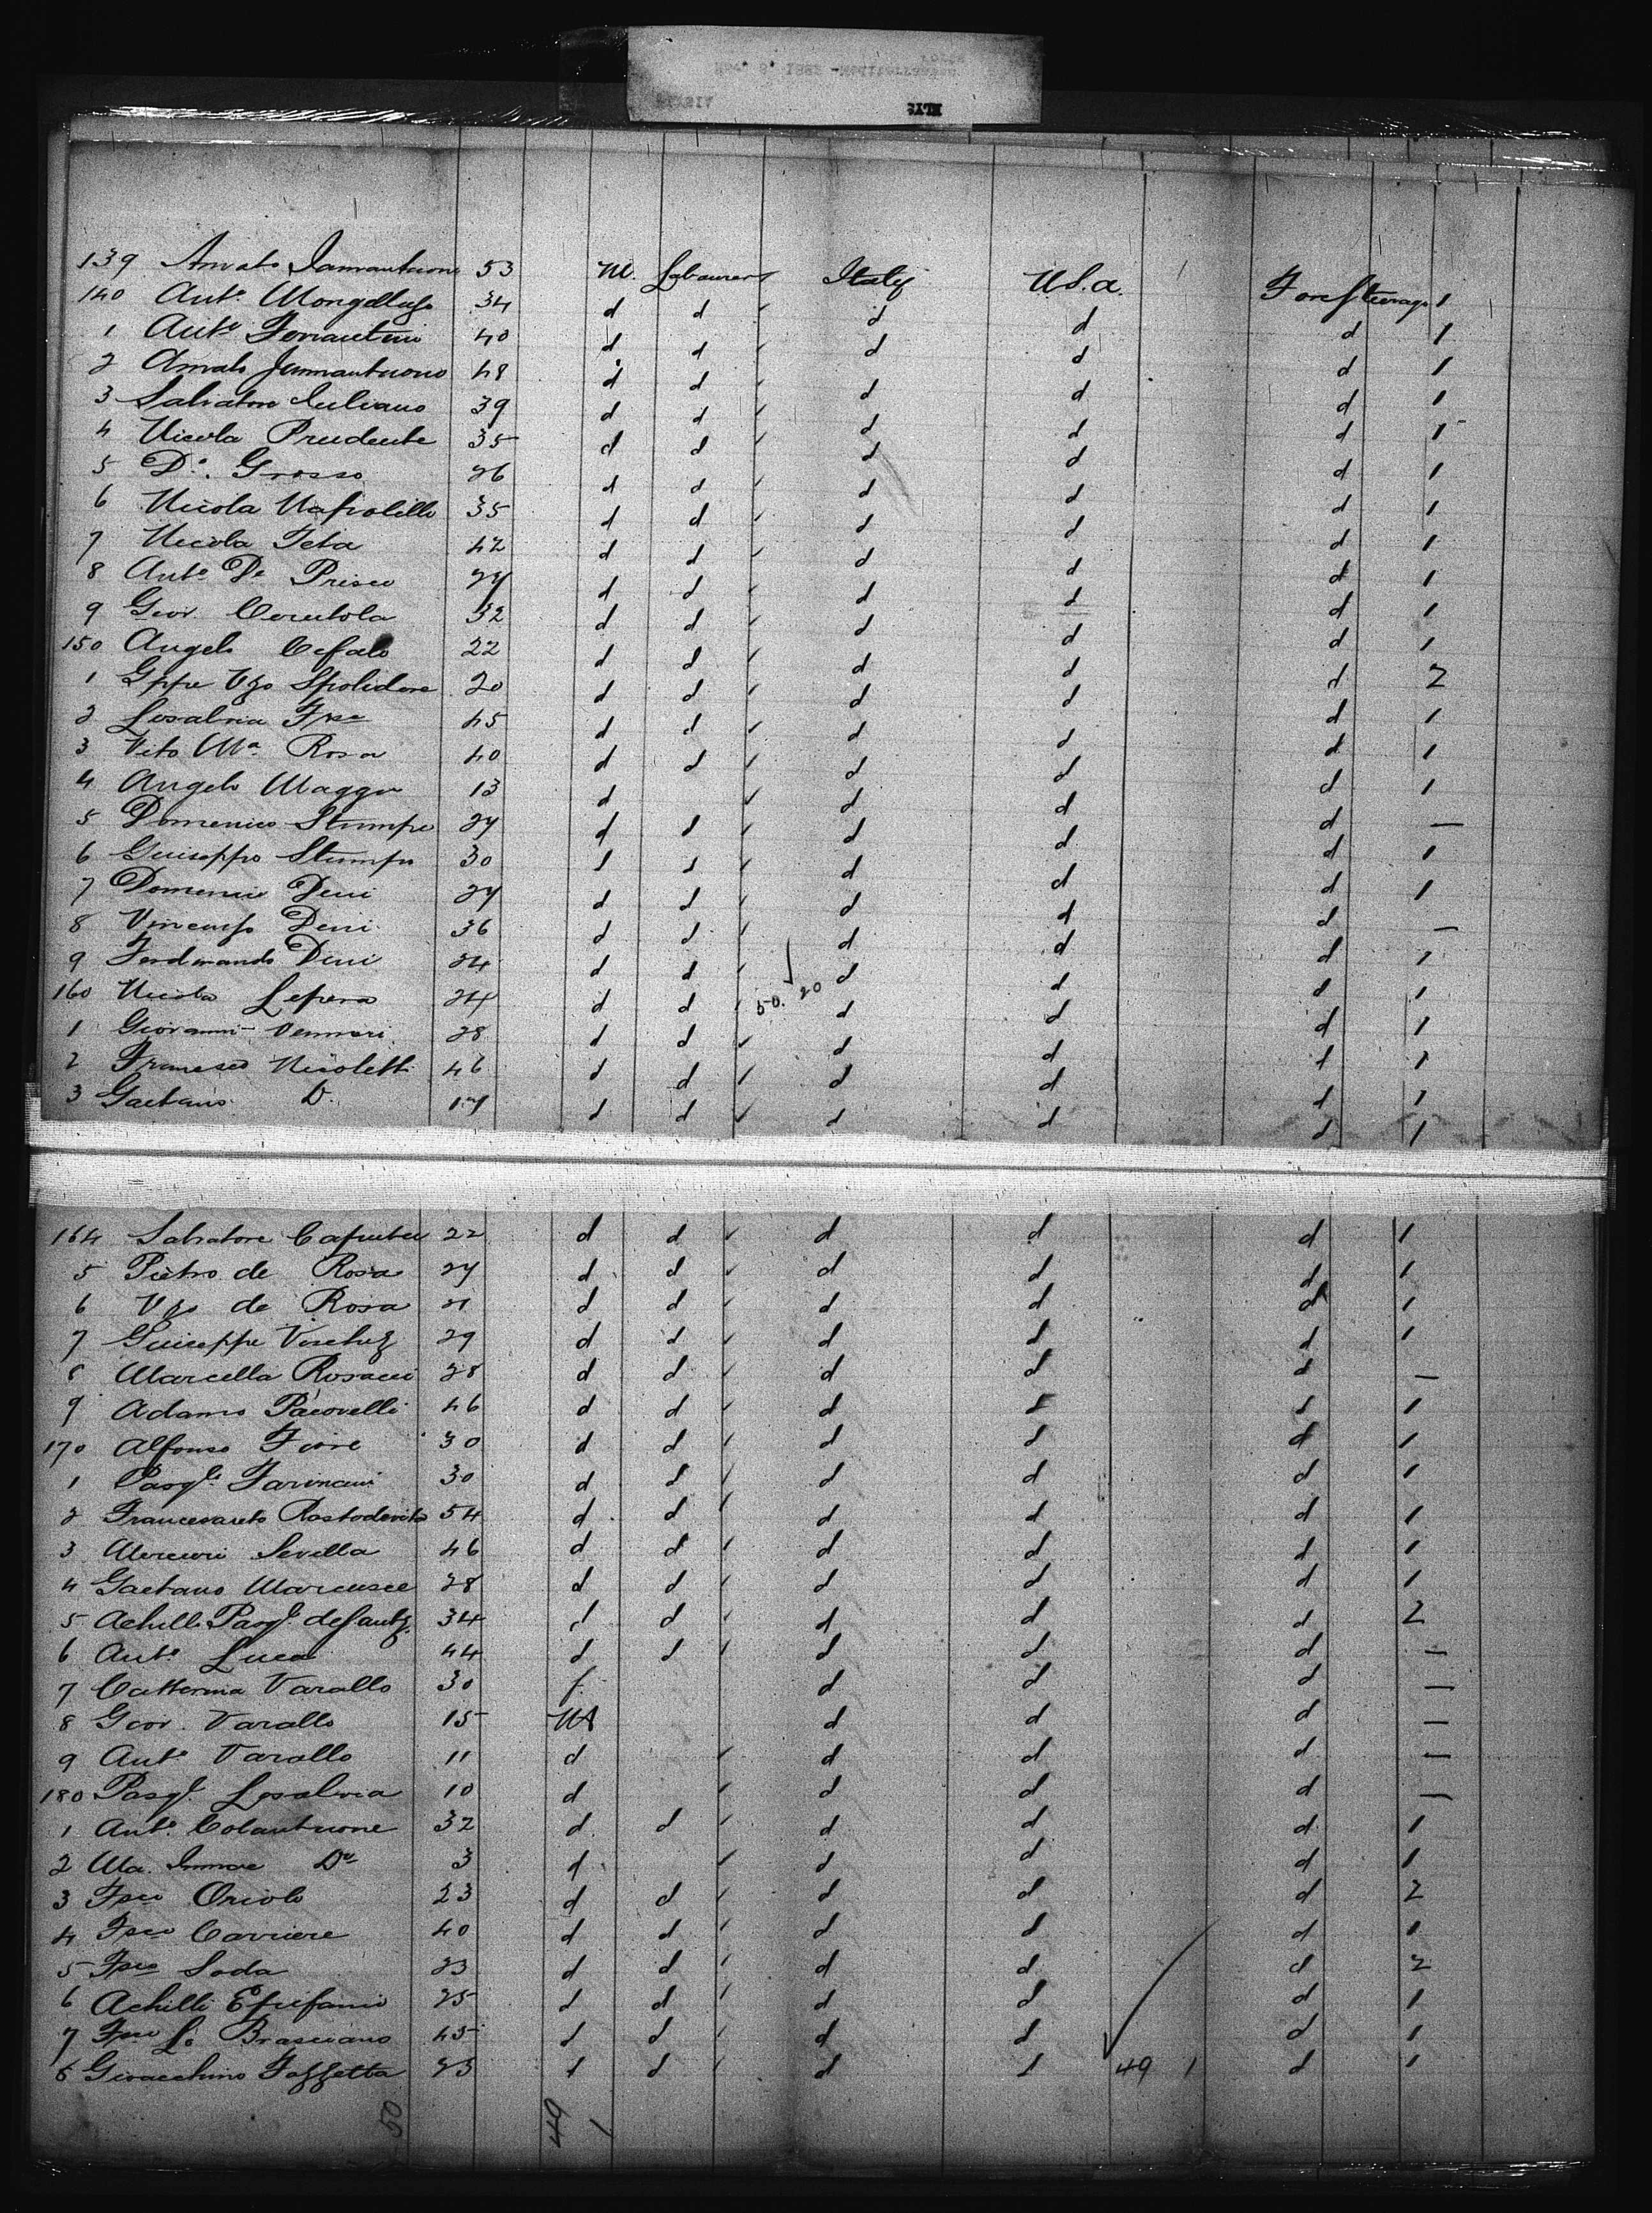 139 Amato Iamantuono 53 M. Labourers Italy U.S.a. Foresteerage 1
140 Ant.o 34 d d d d d 1
1 Ant.o 40 d d d d d 1
2 Amato Jammantuono 48 d d d d d 1
3 Salvatore Iuliano 39 d d d d d 1
4 Nicola Prudente 35 d d d d d 1
5 D.o Grosso 26 d d d d d 1
6 Nicola 35 d d d d d 1
7 Nicola Teta 42 d d d d d 1
8 Ant.o De Prisco 24 d d d d d 1
9 Giov. Cerutola 32 d d d d d 1
150 Angelo Cefalo 22 d d d d d 2
1 Gppe Vzo Spolidore 20 d d d d d 1
2 Losalvia Fsco 45 d d d d d 1
3 Vito Ma. Rosa 40 d d d d d 1
4 Angelo Maggio 13 d d d d —
5 Domenico Stumpo 27 d d d d d 1
6 Guiseppe Stumpo 30 d d d d d 1
7 Domenico Deni 24 d d d d d —
8 Vincenzo Deni 36 d d d d d 1
9 Ferdinando Deni 24 d d d d d 1
160 Nicola Lepera 24 d d 50. 20 d d d 1
1 Giovanni Vennari 28 d d d d d 1
2 Francesco Nicoletti 46 d d d d d 1
3 Gaetano D. 17 d d d d d 1
164 Salvatore 22 d d d d d 1
5 Pietro de Rosa 27 d d d d d 1
6 Vzo de Rosa 21 d d d d d 1
7 Guiseppe 29 d d d d d 1
8 Marcella Rosacci 28 d d d d d —
9 Adamo Pacovelli 46 d d d d d 1
170 Alfonso Fiore 30 d d d d d 1
1 Pasqle. 30 d d d d d 1
2 54 d d d d d 1
3 Mercuri Sevilla 46 d d d d d 1
4 Gaetano 28 d d d d d 1
5 Achille Pasql. 34 d d d d d 2
6 Ant.o Luca 44 d d d d d —
7 Catterina Varallo 30 f d d d —
8 Giov. Varallo 15 M d d d —
9 Ant.o Varallo 11 d d d d —
180 Pasql. Losalvia 10 d d d d —
1 Ant.o Colantuone 32 d d d d d 1
2 Ma. D.o 3 d d d d 1
3 Fsco Oriolo 23 d d d d d 2
4 Fsco Carriere 40 d d d d d 1
5 Fsco Soda 23 d d d d d 2
6 Achilli Epifanio 25 d d d d d 1
7 Fsco Lo Brasciano 45 d d d d d 1
8 Gioacchino Fazzetta 23 d d d d 49 1 d 1
50 49 1